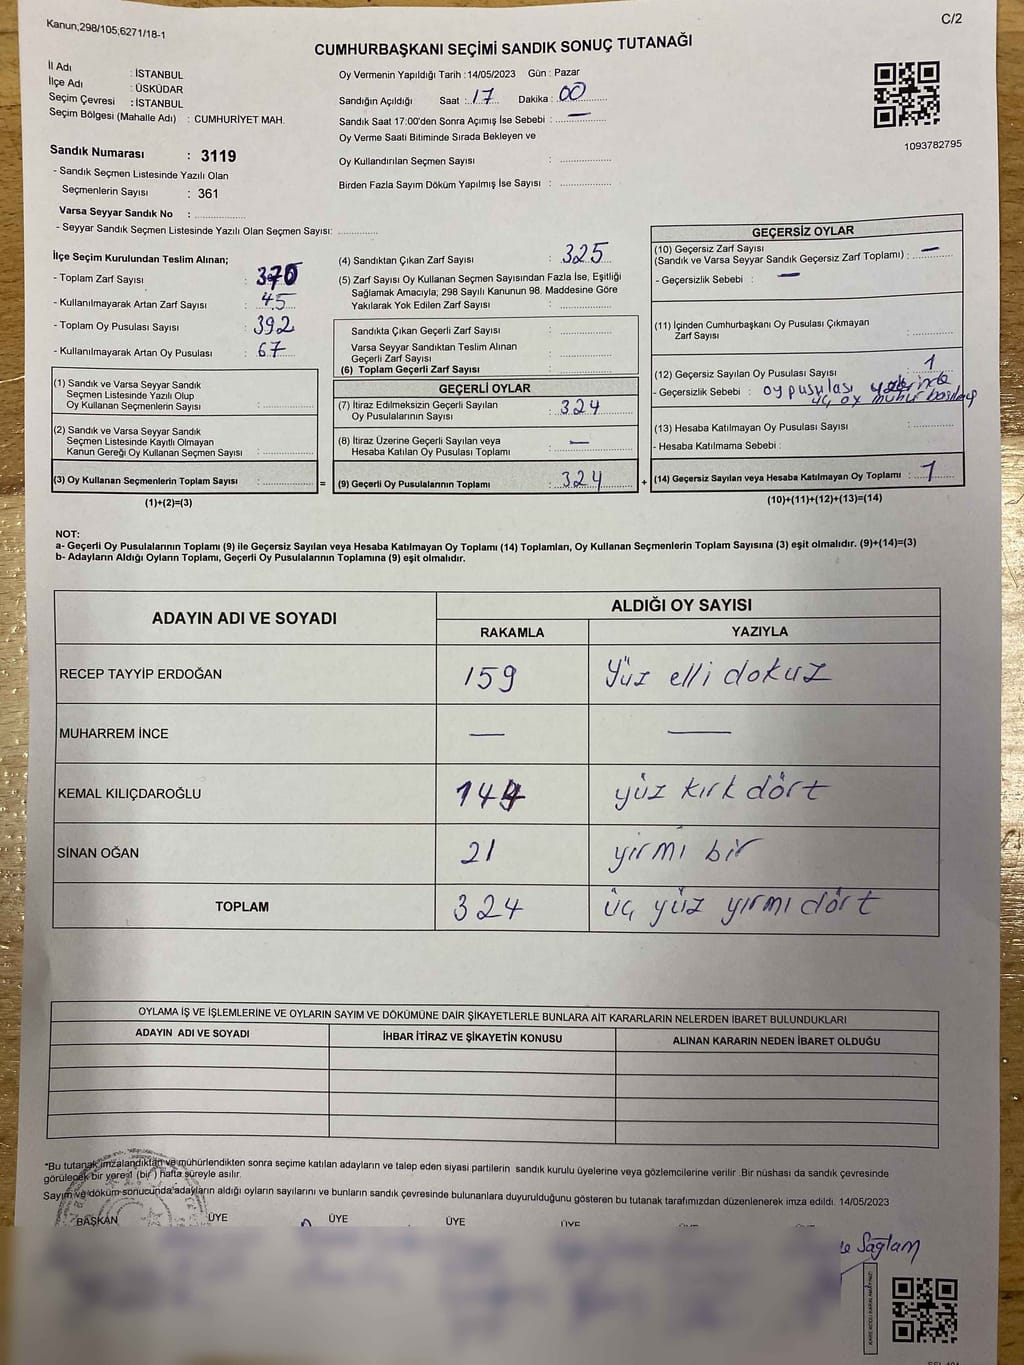 Kanun,298/105,6271/18-1
C/2
CUMHURBAŞKANI SEÇİMİ SANDIK SONUÇ TUTANAĞI
İl Adı : İSTANBUL
İlçe Adı : ÜSKÜDAR
Seçim Çevresi : İSTANBUL
Seçim Bölgesi (Mahalle Adı) : CUMHURİYET MAH.
Sandık Numarası : 3119
- Sandık Seçmen Listesinde Yazılı Olan
Seçmenlerin Sayısı : 361
Varsa Seyyar Sandık No :
- Seyyar Sandık Seçmen Listesinde Yazılı Olan Seçmen Sayısı:
Oy Vermenin Yapıldığı Tarih :14/05/2023 Gün : Pazar
Sandığın Açıldığı Saat : 17 Dakika : 00
Sandık Saat 17:00'den Sonra Açımış İse Sebebi : —
Oy Verme Saati Bitiminde Sırada Bekleyen ve
Oy Kullandırılan Seçmen Sayısı :
Birden Fazla Sayım Döküm Yapılmış İse Sayısı :
1093782795
İlçe Seçim Kurulundan Teslim Alınan;
- Toplam Zarf Sayısı : 370
- Kullanılmayarak Artan Zarf Sayısı : 45
- Toplam Oy Pusulası Sayısı : 392
- Kullanılmayarak Artan Oy Pusulası : 67
(1) Sandık ve Varsa Seyyar Sandık
Seçmen Listesinde Yazılı Olup
Oy Kullanan Seçmenlerin Sayısı :
(2) Sandık ve Varsa Seyyar Sandık
Seçmen Listesinde Kayıtlı Olmayan
Kanun Gereği Oy Kullanan Seçmen Sayısı :
(3) Oy Kullanan Seçmenlerin Toplam Sayısı : =
(1)+(2)=(3)
(4) Sandıktan Çıkan Zarf Sayısı : 325
(5) Zarf Sayısı Oy Kullanan Seçmen Sayısından Fazla İse, Eşitliği
Sağlamak Amacıyla; 298 Sayılı Kanunun 98. Maddesine Göre
Yakılarak Yok Edilen Zarf Sayısı :
Sandıkta Çıkan Geçerli Zarf Sayısı :
Varsa Seyyar Sandıktan Teslim Alınan
Geçerli Zarf Sayısı :
(6) Toplam Geçerli Zarf Sayısı :
GEÇERLİ OYLAR
(7) İtiraz Edilmeksizin Geçerli Sayılan
Oy Pusulalarının Sayısı : 324
(8) İtiraz Üzerine Geçerli Sayılan veya
Hesaba Katılan Oy Pusulası Toplamı : —
(9) Geçerli Oy Pusulalarının Toplamı : 324 +
GEÇERSİZ OYLAR
(10) Geçersiz Zarf Sayısı
(Sandık ve Varsa Seyyar Sandık Geçersiz Zarf Toplamı) : —
- Geçersizlik Sebebi : —
(11) İçinden Cumhurbaşkanı Oy Pusulası Çıkmayan
Zarf Sayısı :
(12) Geçersiz Sayılan Oy Pusulası Sayısı : 1
- Geçersizlik Sebebi : oy pusulası
üç oy mühür
(13) Hesaba Katılmayan Oy Pusulası Sayısı :
- Hesaba Katılmama Sebebi :
(14) Geçersiz Sayılan veya Hesaba Katılmayan Oy Toplamı : 1
(10)+(11)+(12)+(13)=(14)
NOT:
a- Geçerli Oy Pusulalarının Toplamı (9) ile Geçersiz Sayılan veya Hesaba Katılmayan Oy Toplamı (14) Toplamları, Oy Kullanan Seçmenlerin Toplam Sayısına (3) eşit olmalıdır. (9)+(14)=(3)
b- Adayların Aldığı Oyların Toplamı, Geçerli Oy Pusulalarının Toplamına (9) eşit olmalıdır.
ADAYIN ADI VE SOYADI
ALDIĞI OY SAYISI
RAKAMLA YAZIYLA
RECEP TAYYİP ERDOĞAN 159 Yüz elli dokuz
MUHARREM İNCE — —
KEMAL KILIÇDAROĞLU 144 yüz kırk dört
SİNAN OĞAN 21 yirmi bir
TOPLAM 324 üç yüz yirmi dört
OYLAMA İŞ VE İŞLEMLERİNE VE OYLARIN SAYIM VE DÖKÜMÜNE DAİR ŞİKAYETLERLE BUNLARA AİT KARARLARIN NELERDEN İBARET BULUNDUKLARI
ADAYIN ADI VE SOYADI İHBAR İTİRAZ VE ŞİKAYETİN KONUSU ALINAN KARARIN NEDEN İBARET OLDUĞU
*Bu tutanak imzalandıktan ve mühürlendikten sonra seçime katılan adayların ve talep eden siyasi partilerin sandık kurulu üyelerine veya gözlemcilerine verilir. Bir nüshası da sandık çevresinde
görülecek bir yere 1 (bir) hafta süreyle asılır.
Sayım ve döküm sonucunda adayların aldığı oyların sayılarını ve bunların sandık çevresinde bulunanlara duyurulduğunu gösteren bu tutanak tarafımızdan düzenlenerek imza edildi. 14/05/2023
BAŞKAN ÜYE ÜYE ÜYE ÜYE
Sağlam